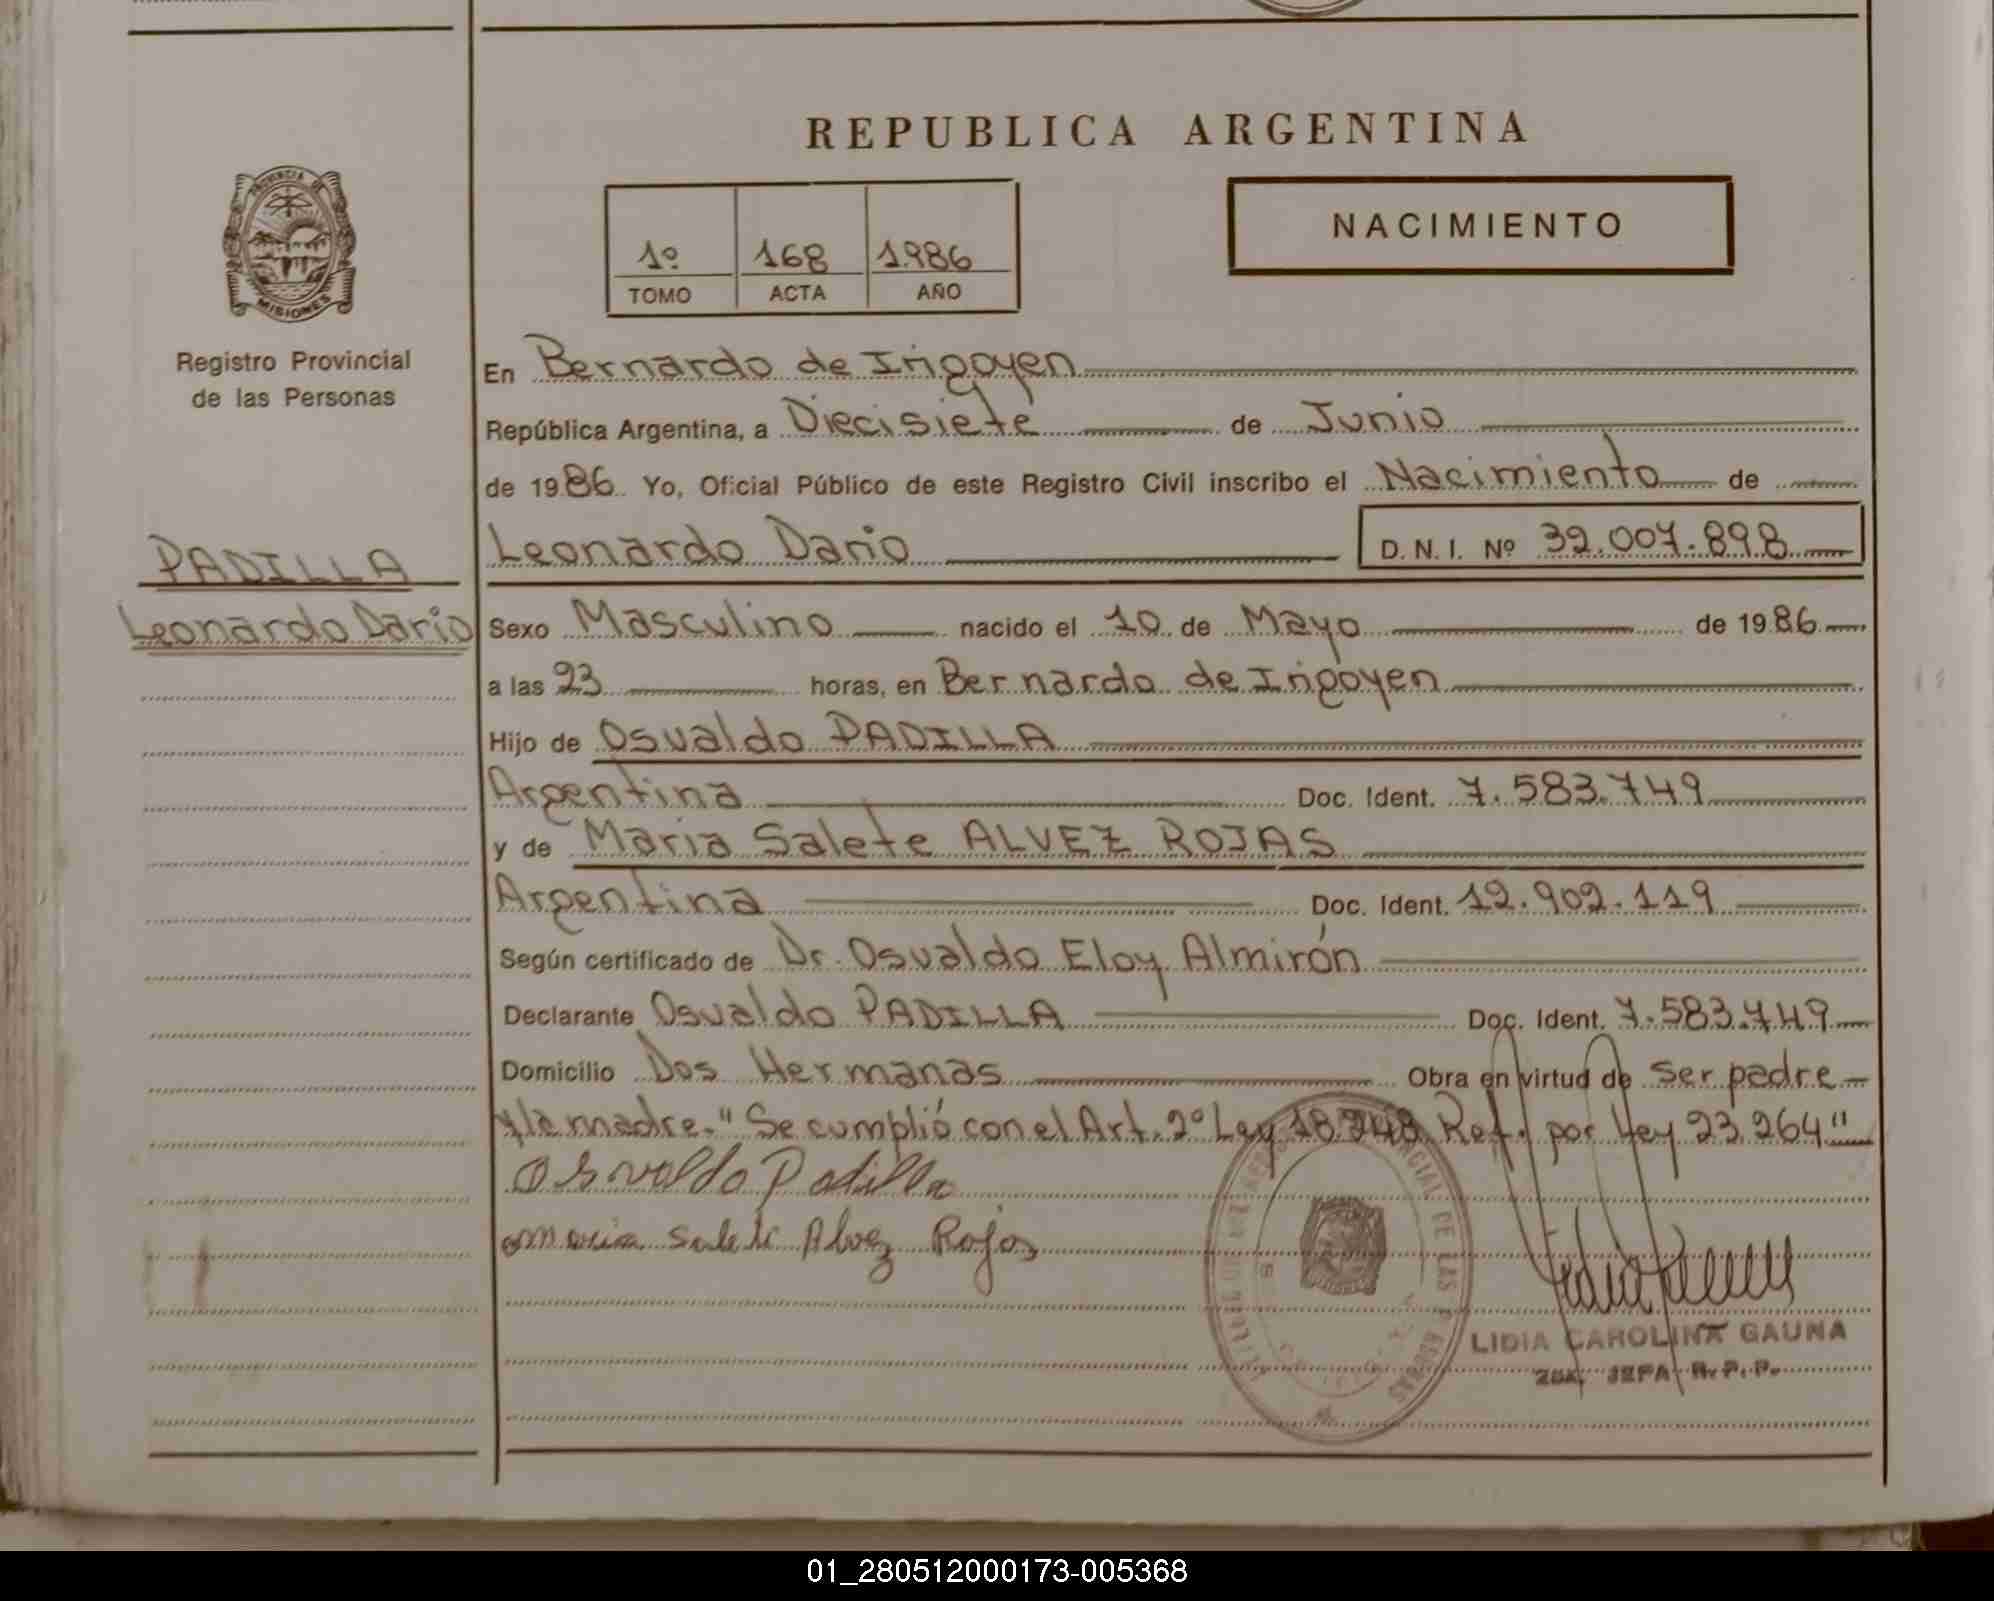 REPUBLICA ARGENTINA
PROVINCIA DE
MISIONES
Registro Provincial
de las Personas
1º 168 1986
TOMO ACTA AÑO
NACIMIENTO
En Bernardo de Irigoyen
República Argentina, a Diecisiete de Junio
de 1986 Yo, Oficial Público de este Registro Civil inscribo el Nacimiento de
PADILLA
Leonardo Dario
Leonardo Dario D. N. I. Nº 32.007.898
Sexo Masculino nacido el 10 de Mayo de 1986
a las 23 horas, en Bernardo de Irigoyen
Hijo de Osvaldo PADILLA
Argentina Doc. Ident. 7.583.749
y de Maria Salete ALVEZ ROJAS
Argentina Doc. Ident. 12.902.119
Según certificado de Dr. Osvaldo Eloy Almirón
Declarante Osvaldo PADILLA Doc. Ident. 7.583.749
Domicilio Dos Hermanas Obra en virtud de ser padre
y la madre. "Se cumplió con el Art. 2º Ley 18.248 Ref. por Ley 23.264"
Osvaldo Padilla
Maria Salete Alvez Rojas
LIDIA CAROLINA GAUNA
JEFA R. P. P.
01_280512000173-005368